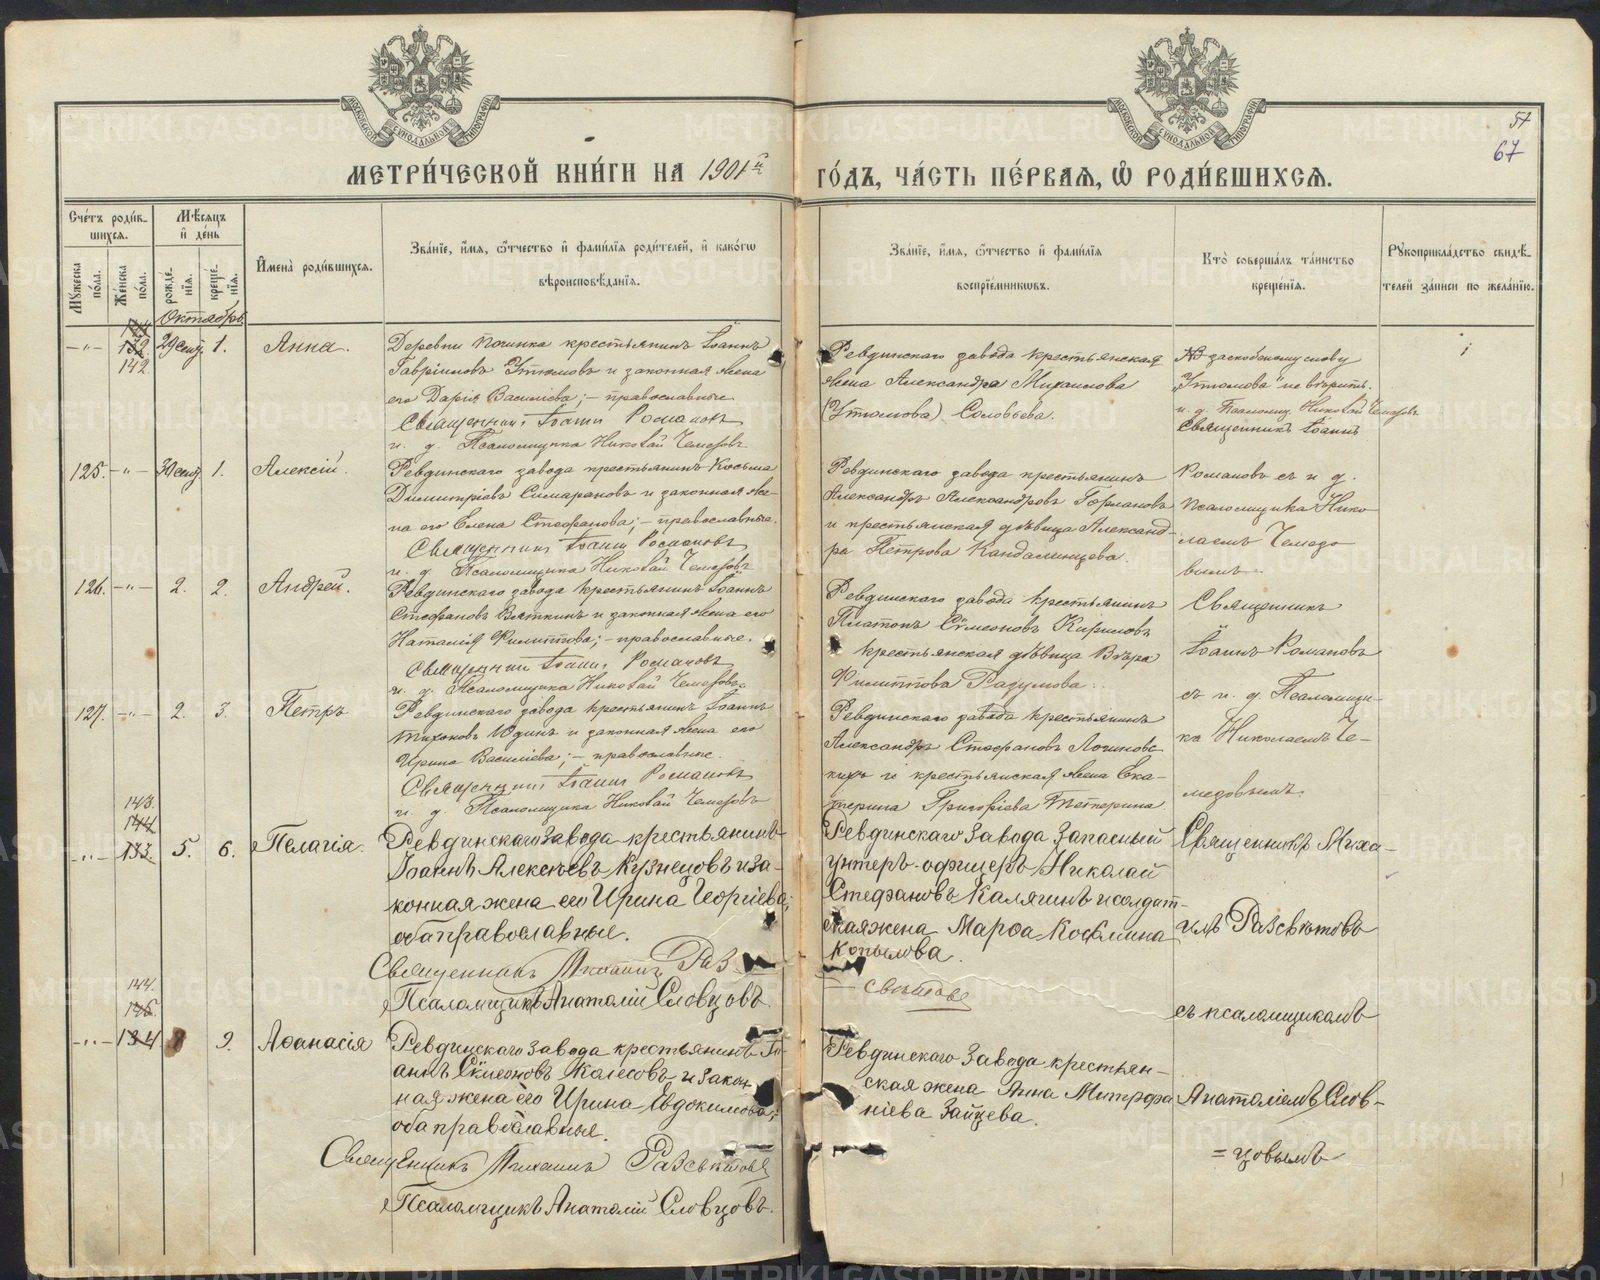 МОСКОВСКОЙ СѴНОДАЛЬНОЙ ТИПОГРАФІИ
МОСКОВСКОЙ СѴНОДАЛЬНОЙ ТИПОГРАФІИ
57
67
МЕТРИ́ЧЕСКОЙ КНИ́ГИ НА 1901й ГО́ДЪ, ЧА́СТЬ ПЕ́РВАѦ, Ѽ РОДИ́ВШИХСѦ.
Сче́тъ роди́в-
шихся.
Мѣ́сяцъ
и҆ де́нь
Му́жеска по́ла.
Же́нска по́ла.
рожде́-нїя.
креще́-нїя.
И҆мена̀ роди́вшихся.
Зва́нїе, и҆́мя, ѻ҆́тчество и҆ фами́лїя роди́телей, и҆ како́гѡ
вѣроисповѣ́данїя.
Зва́нїе, и҆́мя, ѻ҆́тчество и҆ фами́лїя
воспрїе́мникѡвъ.
Кто̀ соверша́лъ та́инство
креще́нїя.
Рꙋкоприкла́дство свидѣ́-
телей за́писи по жела́нїю.
Октябрь.
132
142
29 сент. 1. Анна.
Деревни Починка крестьянинъ Іоаннъ
Гавріиловъ Утюмовъ и законная жена
его Дарія Василіева; – православные
Священникъ Іоаннъ Романовъ
и. д. Псаломщика Николай Чемезовъ
Ревдинскаго завода крестьянская
жена Александра Михаилова
(Утюмова) Соловьева.
По заскобленному слову
„Утюмова" не вѣрить.
и. д. Псаломщ. Николай Чемезовъ
Священникъ Іоаннъ
125. 30 сент. 1. Алексій.
Ревдинскаго завода крестьянинъ Косьма
Димитріевъ и законная же-
на его Елена Стефанова; – православные.
Священникъ Іоаннъ Романовъ
и. д. Псаломщика Николай Чемезовъ
Ревдинскаго завода крестьянинъ
Александръ Александровъ
и крестьянская дѣвица Александ-
ра Петрова
Романовъ съ и. д.
Псаломщика Нико
лаемъ Чемезо
вымъ.
126. 2. 2. Андрей.
Ревдинскаго завода крестьянинъ Іоаннъ
Стефановъ Вяткинъ и законная жена его
Наталія Филиппова; – православные.
Священникъ Іоаннъ Романовъ
и. д. Псаломщика Николай Чемезовъ
Ревдинскаго завода крестьянинъ
Платонъ Сѵмеоновъ Кириловъ
крестьянская дѣвица Вѣра
Филиппова
Священникъ
Іоаннъ Романовъ
съ и. д. Псаломщи-
127. 2. 3. Петръ
Ревдинскаго завода крестьянинъ Іоаннъ
Тихоновъ Юдинъ и законная жена его
Ирина Василіева; – православные.
Священникъ Іоаннъ Романовъ
и. д. Псаломщика Николай Чемезовъ
Ревдинскаго завода крестьянинъ
Александръ Стефановъ Логиновс
кихъ и крестьянская жена Ека-
терина Григоріева Тетерина
ка Николаемъ Че-
мезовымъ.
143.
144
133. 5. 6. Пелагія.
Ревдинскаго Завода крестьянинъ
Іоаннъ Алексѣевъ Кузнецовъ и за-
конная жена его Ирина Георгіева;
оба православные.
Священникъ Михаилъ Раз
Псаломщикъ Анатолій Словцовъ.
Ревдинскаго Завода Запасный
унтеръ-офицеръ Николай
Стефановъ Калягинъ и солдат-
ская жена Марѳа Космина
Копылова.
свѣтовъ
Священникъ Миха-
илъ Разсвѣтовъ
съ псаломщикомъ
144.
134 8 9. Аѳанасія
Ревдинскаго Завода крестьянинъ Іо-
аннъ Сѵмеоновъ Колесовъ и закон
ная жена его Ирина Евдокимова;
оба православные.
Священникъ Михаилъ Разсвѣтовъ
Псаломщикъ Анатолій Словцовъ.
Ревдинскаго Завода крестьян-
ская жена Анна Митрофа
ніева Зайцева.
Анатоліемъ Слов-
=цовымъ
METRIKI.GASO-URAL.RU